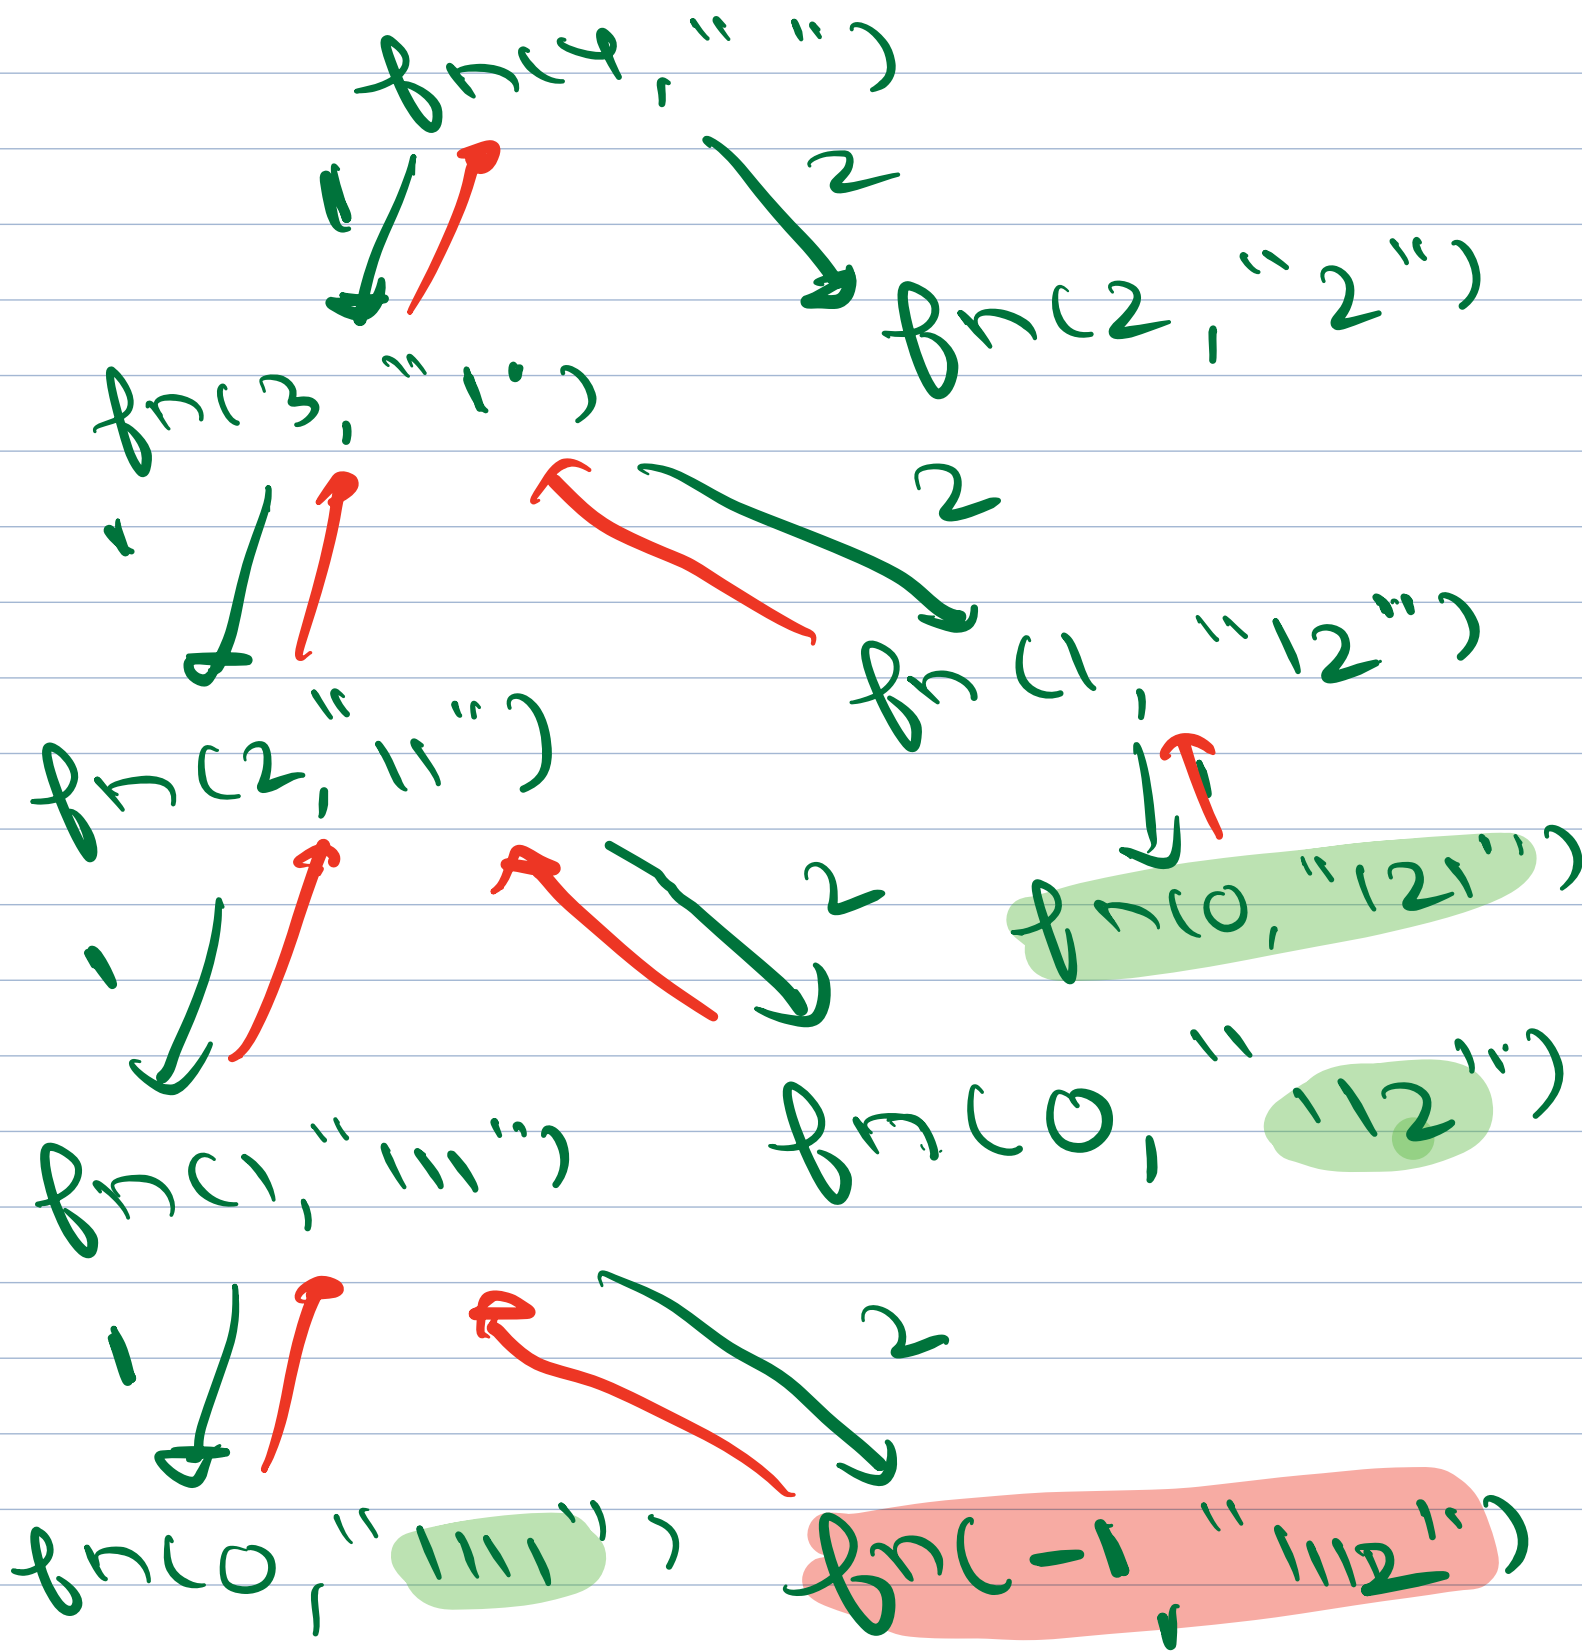 fn(4, " ")
1 2
fn(2, "2")
fn(3, "1")
1 2
fn(1, "12")
fn(2, "11")
1
fn(0, "121")
1 2
fn(1, "111")
fn(0, "112")
1 2
fn(0, "1111")
fn(-1, "1112")